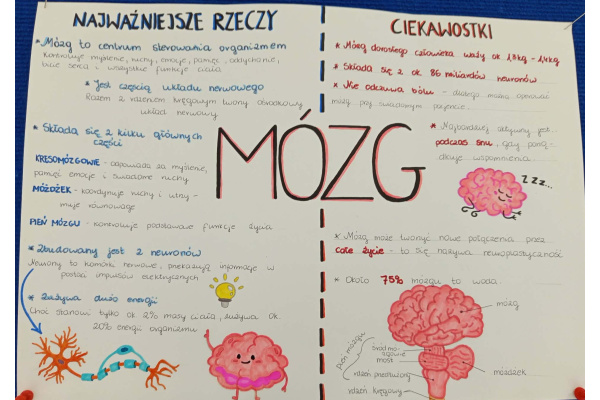 NAJWAŻNIEJSZE RZECZY
* Mózg to centrum sterowania organizmem
Kontroluje myślenie, ruchy, emocje, pamięć, oddychanie,
bicie serca i wszystkie funkcje ciała
* Jest częścią układu nerwowego
Razem z rdzeniem kręgowym tworzy ośrodkowy
układ nerwowy
* Składa się z kilku głównych
części
KRESOMÓZGOWIE - odpowiada za myślenie,
pamięć emocje i świadome ruchy
MÓŻDŻEK - koordynuje ruchy i utrzy-
muje równowagę
PIEŃ MÓZGU - kontroluje podstawowe funkcje życia
* Zbudowany jest z neuronów
Neurony to komórki nerwowe, przekazują informacje w
postaci impulsów elektrycznych
* Zużywa dużo energii
Choć stanowi tylko ok. 2% masy ciała, zużywa ok.
20% energii organizmu
MÓZG
CIEKAWOSTKI
* Mózg dorosłego człowieka waży ok 1,3kg - 1,4kg
* Składa się z ok. 86 miliardów neuronów
* Nie odczuwa bólu - dlatego można operować
mózg przy świadomym pacjencie.
* Najbardziej aktywny jest
podczas snu, gdy
wspomnienia
zzz...
* Mózg może tworzyć nowe połączenia przez
całe życie - to się nazywa neuroplastyczność
* Około 75% mózgu to woda
mózg
pień mózgu
śródmó-
zgowie
most
móżdżek
rdzeń przedłużony
rdzeń kręgowy